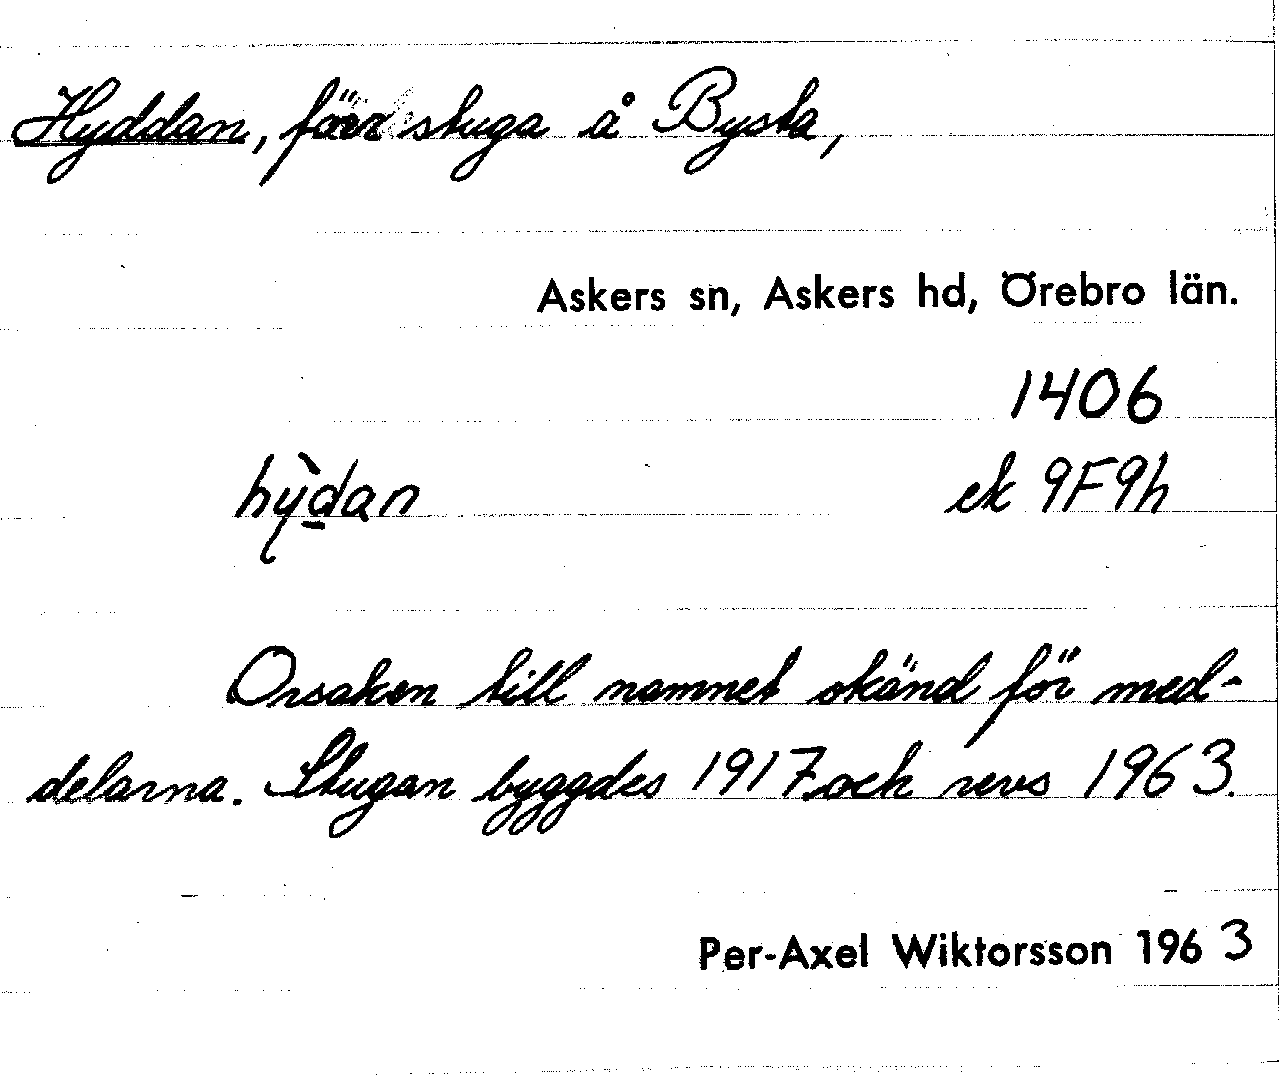 Hyddan, stuga å Bysta,
Askers sn, Askers hd, Örebro län.
1406
hỳd̲an
ek 9F9h
Orsaken till namnet okänd för med-
delarna. Stugan byggdes 1917 och revs 1963.
Per-Axel Wiktorsson 1963